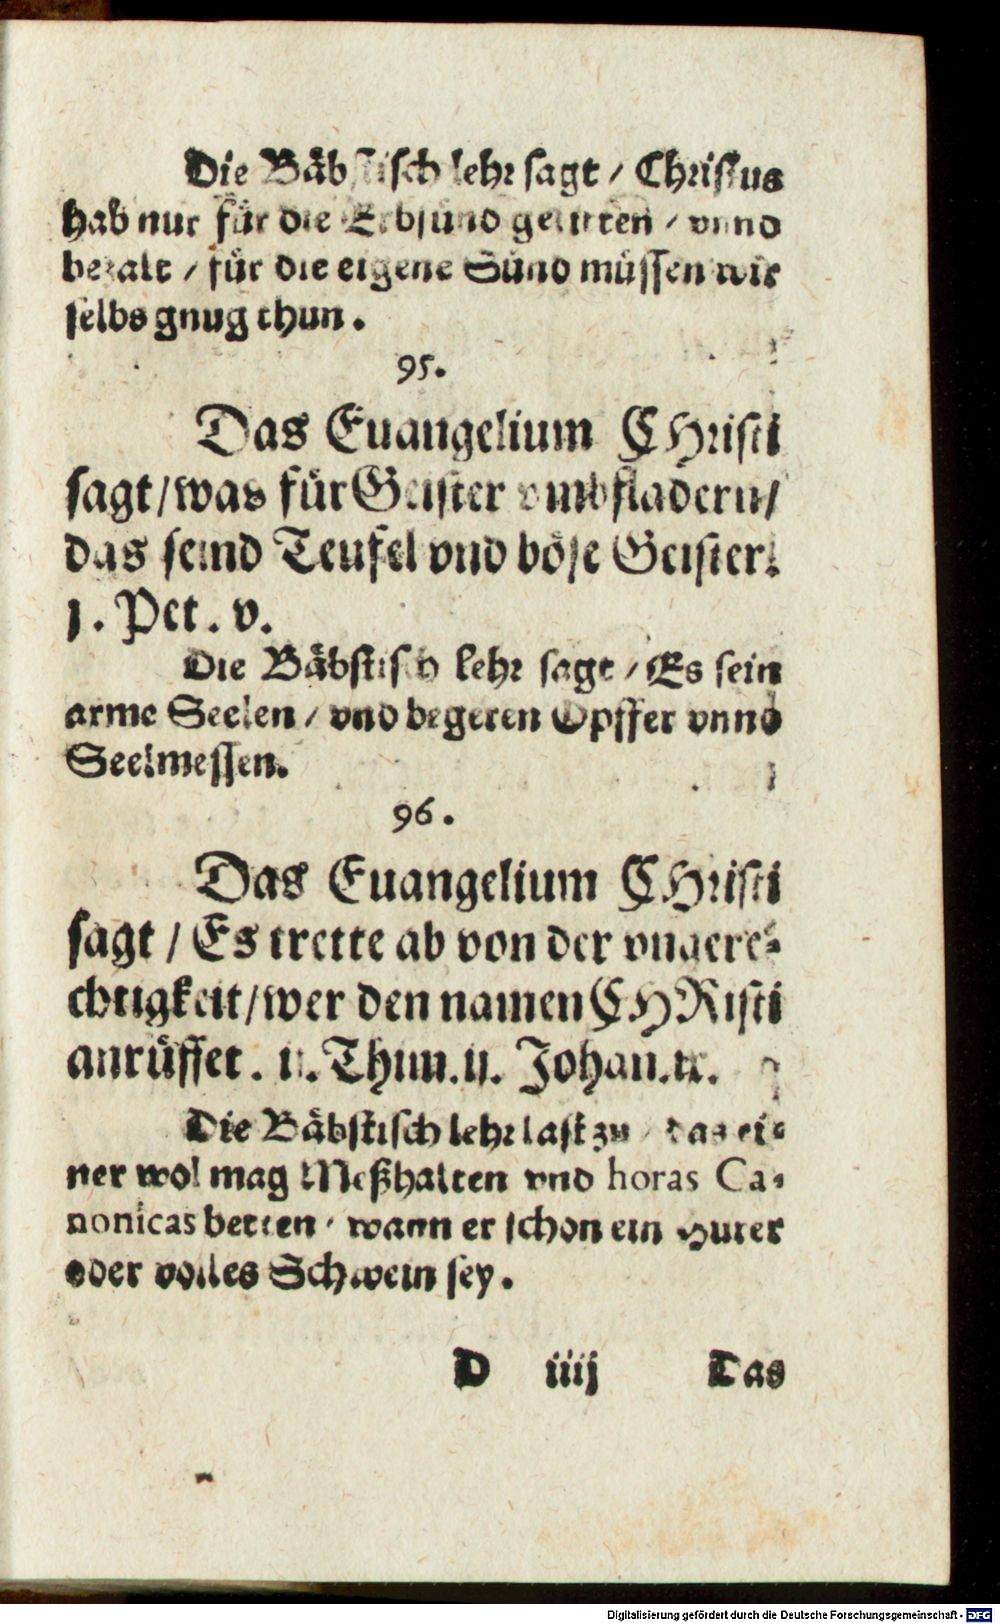 Die Bäbstisch lehr sagt / Christus
hab nur für die Erbsünd gelitten / vnnd
bezalt / für die eigene Sünd müssen wir
selbs gnug thun.
95.
Das Euangelium CHristi
sagt / was für Geister vmbfladern /
das seind Teufel vnd böse Geister.
1. Pet. v.
Die Bäbstisch lehr sagt / Es sein
arme Seelen / vnd begeren Opffer vnnd
Seelmessen.
96.
Das Euangelium CHristi
sagt / Es trette ab von der vngere-
chtigkeit / wer den namen CHRisti
anrüffet. ij. Thim. ij. Johan. ix.
Die Bäbstisch lehr last zu / das ei-
ner wol mag Meßhalten vnd horas Ca-
nonicas betten / wann er schon ein Hurer
oder volles Schwein sey.
D iiij Das
Digitalisierung gefördert durch die Deutsche Forschungsgemeinschaft - DFG